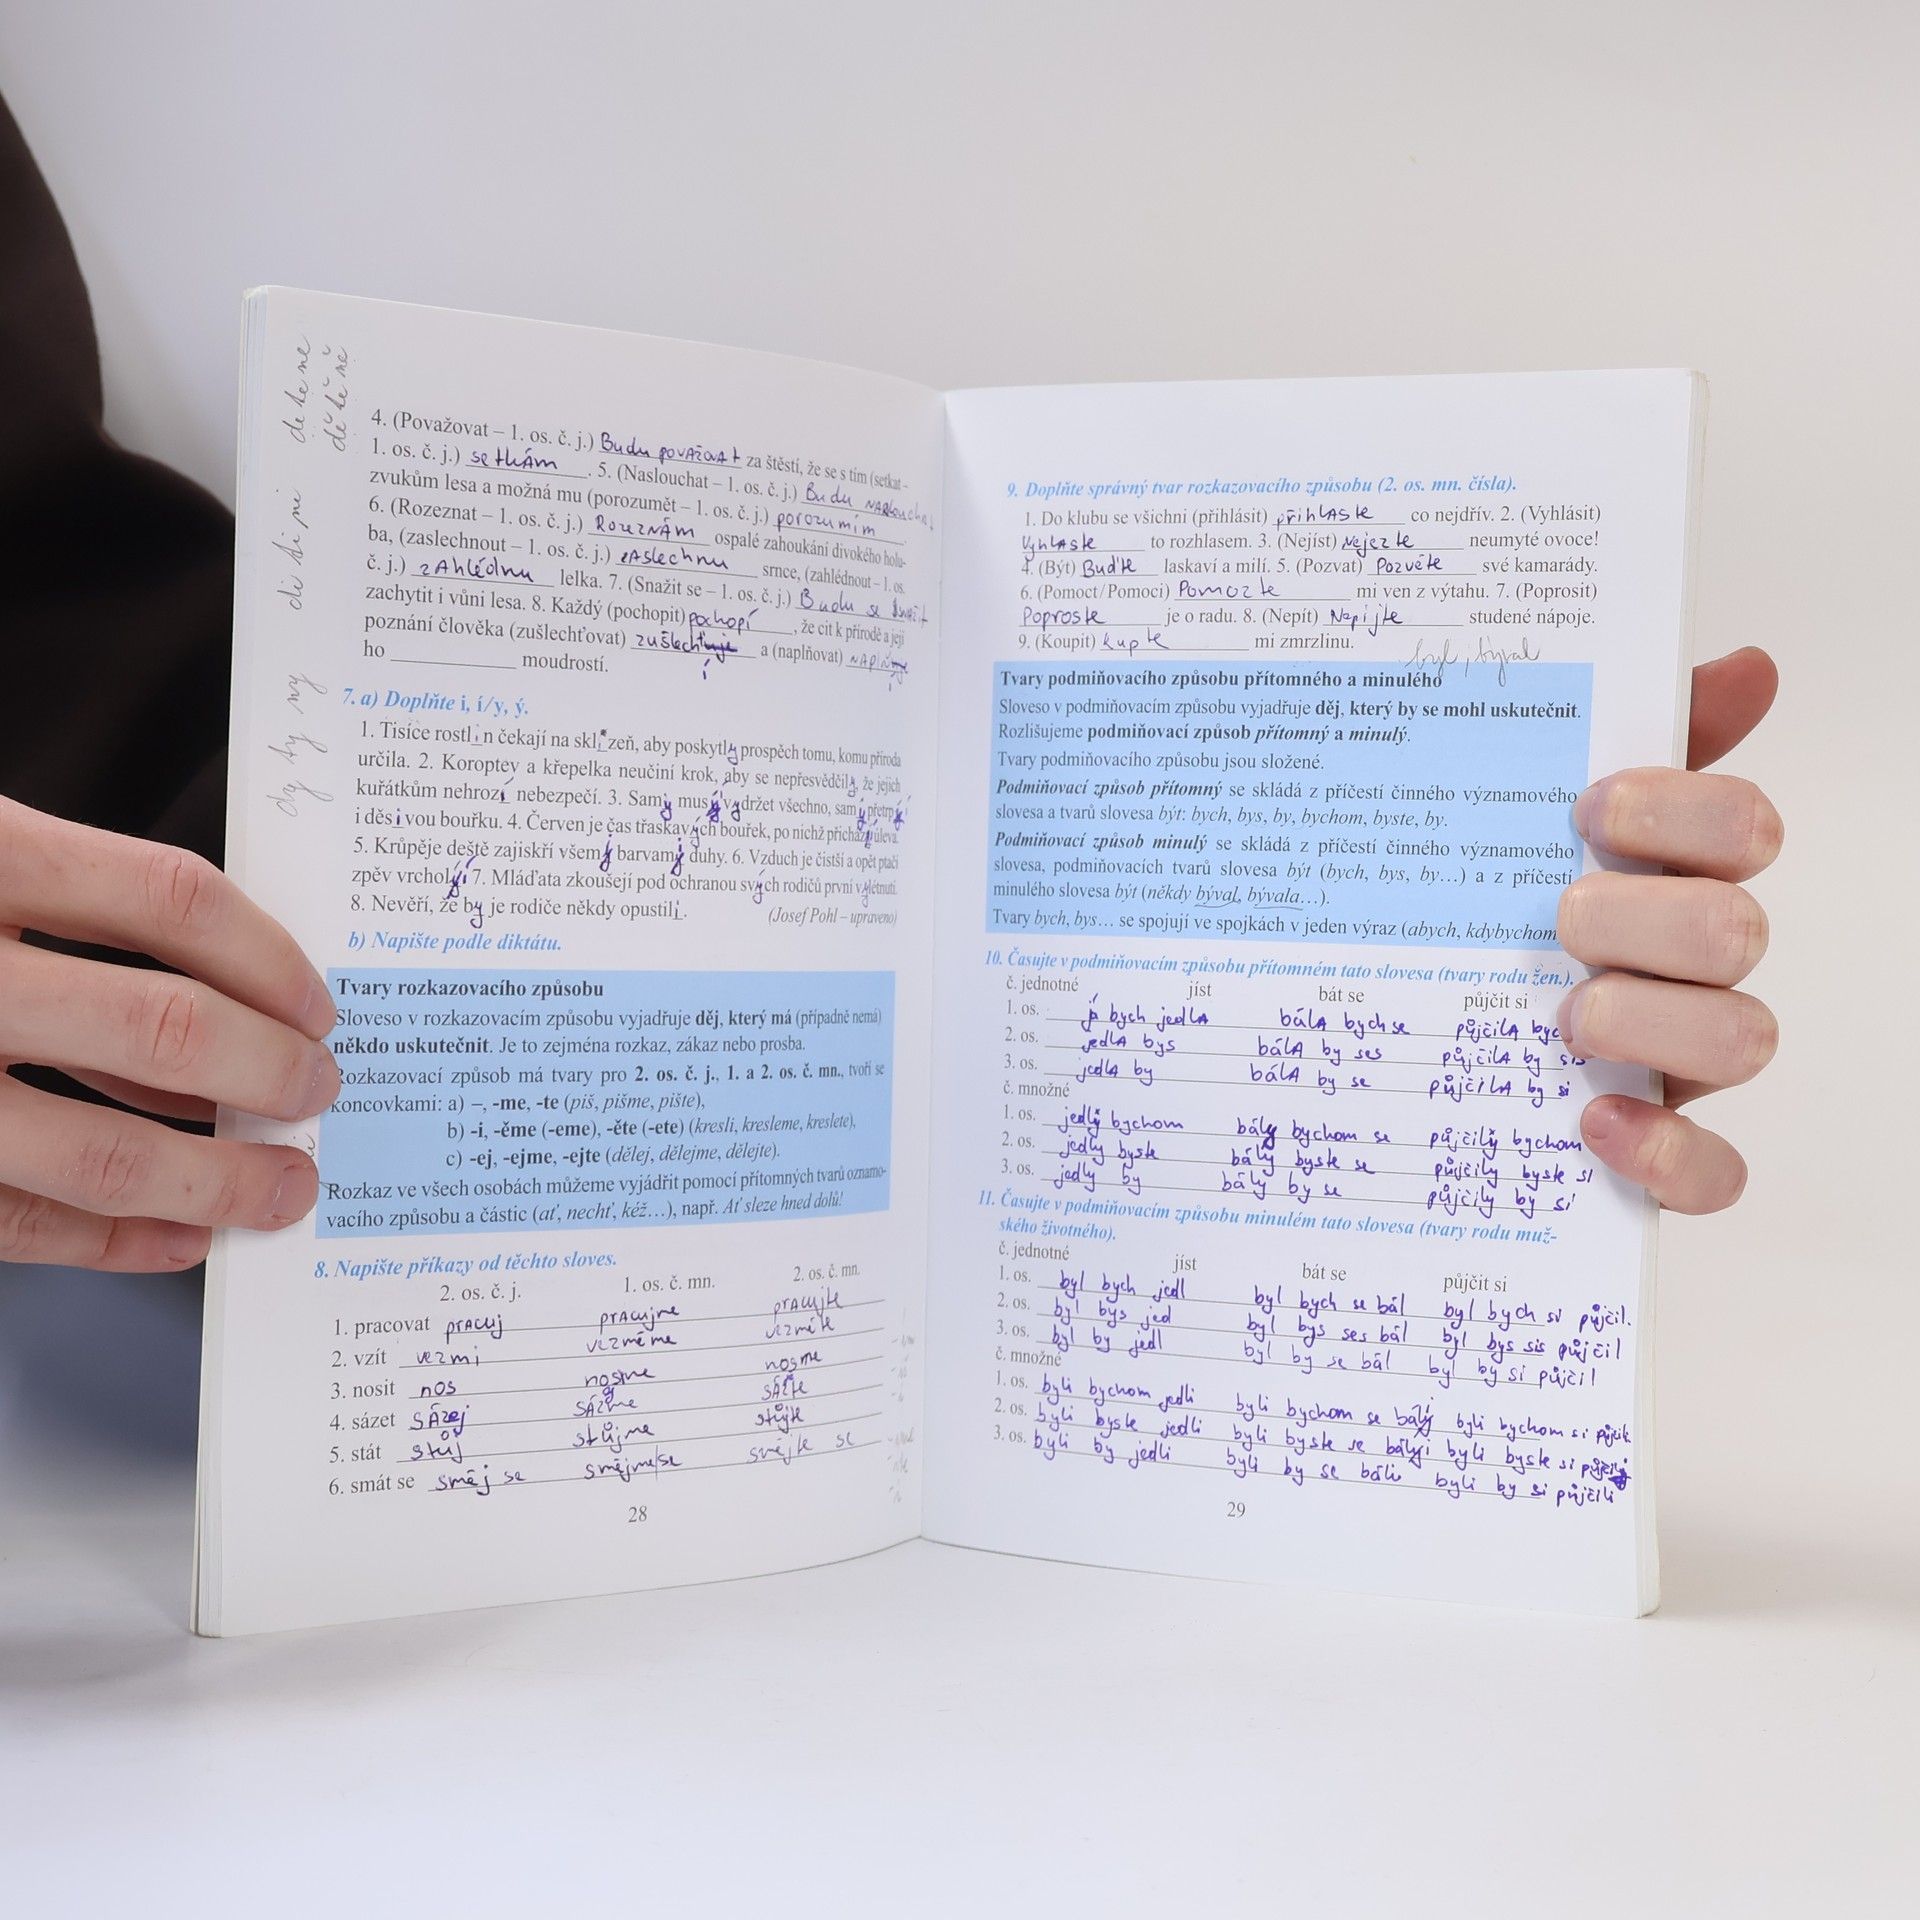 de te ne
dě tě ně
di ti ni
dy ty ny
4. (Považovat – 1. os. č. j.) Budu považovat za štěstí, že se s tím (setkat –
1. os. č. j.) setkám. 5. (Naslouchat – 1. os. č. j.) Budu naslouchat
zvukům lesa a možná mu (porozumět – 1. os. č. j.) porozumím.
6. (Rozeznat – 1. os. č. j.) Rozeznám ospalé zahoukání divokého holu-
ba, (zaslechnout – 1. os. č. j.) zaslechnu srnce, (zahlédnout – 1. os.
č. j.) zahlédnu lelka. 7. (Snažit se – 1. os. č. j.) Budu se snažit
zachytit i vůni lesa. 8. Každý (pochopit) pochopí, že cit k přírodě a její
poznání člověka (zušlechťovat) zušlechťuje a (naplňovat)
ho ____________ moudrostí.
7. a) Doplňte i, í/y, ý.
1. Tisíce rostlin čekají na sklizeň, aby poskytly prospěch tomu, komu příroda
určila. 2. Koroptev a křepelka neučiní krok, aby se nepřesvědčily, že jejich
kuřátkům nehrozí nebezpečí. 3. Samy musí vydržet všechno, samy přetrpí
i děsivou bouřku. 4. Červen je čas třaskavých bouřek, po nichž přichází úleva.
5. Krůpěje deště zajiskří všemi barvami duhy. 6. Vzduch je čistší a opět ptačí
zpěv vrcholí. 7. Mláďata zkoušejí pod ochranou svých rodičů první vylétnutí.
8. Nevěří, že by je rodiče někdy opustili.
(Josef Pohl – upraveno)
b) Napište podle diktátu.
Tvary rozkazovacího způsobu
Sloveso v rozkazovacím způsobu vyjadřuje děj, který má (případně nemá)
někdo uskutečnit. Je to zejména rozkaz, zákaz nebo prosba.
Rozkazovací způsob má tvary pro 2. os. č. j., 1. a 2. os. č. mn., tvoří se
koncovkami: a) –, -me, -te (piš, pišme, pište),
b) -i, -ěme (-eme), -ěte (-ete) (kresli, kresleme, kreslete),
c) -ej, -ejme, -ejte (dělej, dělejme, dělejte).
Rozkaz ve všech osobách můžeme vyjádřit pomocí přítomných tvarů oznamo-
vacího způsobu a částic (ať, nechť, kéž…), např. Ať sleze hned dolů!
8. Napište příkazy od těchto sloves.
2. os. č. j. 1. os. č. mn. 2. os. č. mn.
1. pracovat pracuj pracujme pracujte
2. vzít vezmi vezměme vezměte
3. nosit nos nosme nosme
4. sázet sázej
5. stát stůj stůjme stůjte
6. smát se směj se smějme se smějte se
28
9. Doplňte správný tvar rozkazovacího způsobu (2. os. mn. čísla).
1. Do klubu se všichni (přihlásit) přihlaste co nejdřív. 2. (Vyhlásit)
Vyhlaste to rozhlasem. 3. (Nejíst) Nejezte neumyté ovoce!
4. (Být) Buďte laskaví a milí. 5. (Pozvat) Pozvěte své kamarády.
6. (Pomoct/Pomoci) Pomozte mi ven z výtahu. 7. (Poprosit)
Poproste je o radu. 8. (Nepít) Nepijte studené nápoje.
9. (Koupit) kupte mi zmrzlinu.
byl, býval
Tvary podmiňovacího způsobu přítomného a minulého
Sloveso v podmiňovacím způsobu vyjadřuje děj, který by se mohl uskutečnit.
Rozlišujeme podmiňovací způsob přítomný a minulý.
Tvary podmiňovacího způsobu jsou složené.
Podmiňovací způsob přítomný se skládá z příčestí činného významového
slovesa a tvarů slovesa být: bych, bys, by, bychom, byste, by.
Podmiňovací způsob minulý se skládá z příčestí činného významového
slovesa, podmiňovacích tvarů slovesa být (bych, bys, by…) a z příčestí
minulého slovesa být (někdy býval, bývala…).
Tvary bych, bys… se spojují ve spojkách v jeden výraz (abych, kdybychom
10. Časujte v podmiňovacím způsobu přítomném tato slovesa (tvary rodu žen.).
č. jednotné jíst bát se půjčit si
1. os. já bych jedla bála bych se půjčila byc
2. os. jedla bys bála by ses půjčila by sis
3. os. jedla by bála by se půjčila by si
č. množné
1. os. jedly bychom bály bychom se půjčily bychom
2. os. jedly byste bály byste se půjčily byste si
3. os. jedly by bály by se půjčily by si
11. Časujte v podmiňovacím způsobu minulém tato slovesa (tvary rodu muž-
ského životného).
č. jednotné jíst bát se půjčit si
1. os. byl bych jedl byl bych se bál byl bych si půjčil.
2. os. byl bys jed byl bys ses bál byl bys sis půjčil
3. os. byl by jedl byl by se bál byl by si půjčil
č. množné
1. os. byli bychom jedli byli bychom se báli byli bychom si půjčili
2. os. byli byste jedli byli byste se báli byli byste si půjčili
3. os. byli by jedli byli by se báli byli by si půjčili
29